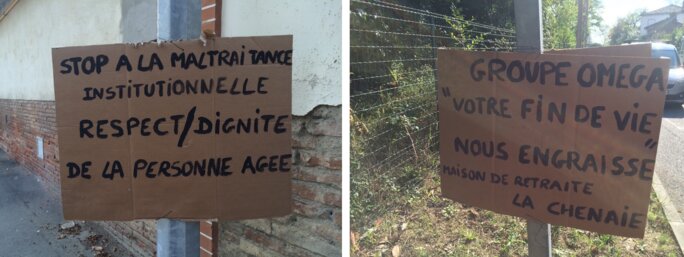 STOP A LA MALTRAITANCE
INSTITUTIONNELLE
RESPECT/DIGNITE
DE LA PERSONNE AGEE
GROUPE OMEGA
"VOTRE FIN DE VIE
NOUS ENGRAISSE"
MAISON DE RETRAITE
LA CHENAIE